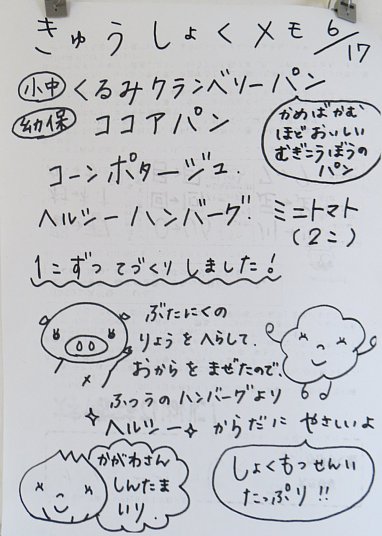 きゅうしょくメモ 6/17
小中 くるみクランベリーパン
幼保 ココアパン
かめばかむ
ほどおいしい
むぎこうぼうの
パン
コーンポタージュ.
ヘルシーハンバーグ. ミニトマト
(2こ)
1こずつてづくりしました!
ぶたにくの
りょうをへらして.
おからをまぜたので、
ふつうのハンバーグより
ヘルシー からだにやさしいよ
かがわさん
しんたま
いり.
しょくもつせんい
たっぷり!!